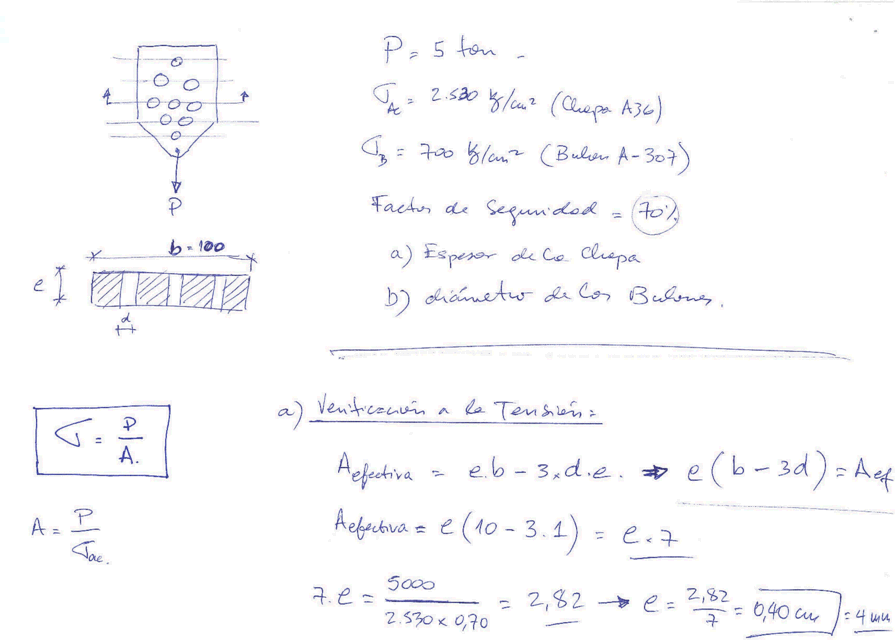 P = 5 ton -
σAc = 2.530 kg/cm² (Chapa A36)
σB = 700 kg/cm² (Bulon A-307)
Factor de Seguridad = 70%
a) Espesor de la Chapa
b) diámetro de los Bulones.
P
b = 100
e
d
σ = P / A.
A = P / σac.
a) Verificación a la Tensión =
Aefectiva = e.b - 3.d.e. ⇒ e (b - 3d) = Aef
Aefectiva = e (10 - 3.1) = e.7
7.e = 5000 / 2.530 x 0,70 = 2,82 → e = 2,82 / 7 = 0,40 cm = 4 mm